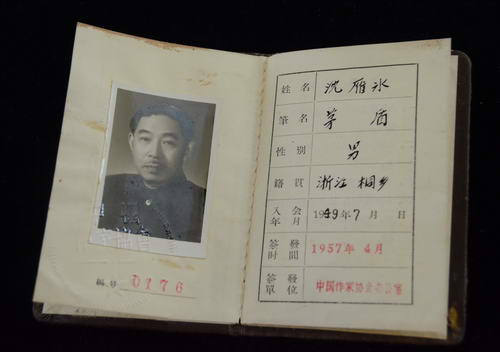 編号 0176
姓名 沈雁冰
筆名 茅盾
性别 男
籍貫 浙江桐乡
入会年月 1949年7月 日
簽發时間 1957年4月
簽發單位 中国作家协会办公室